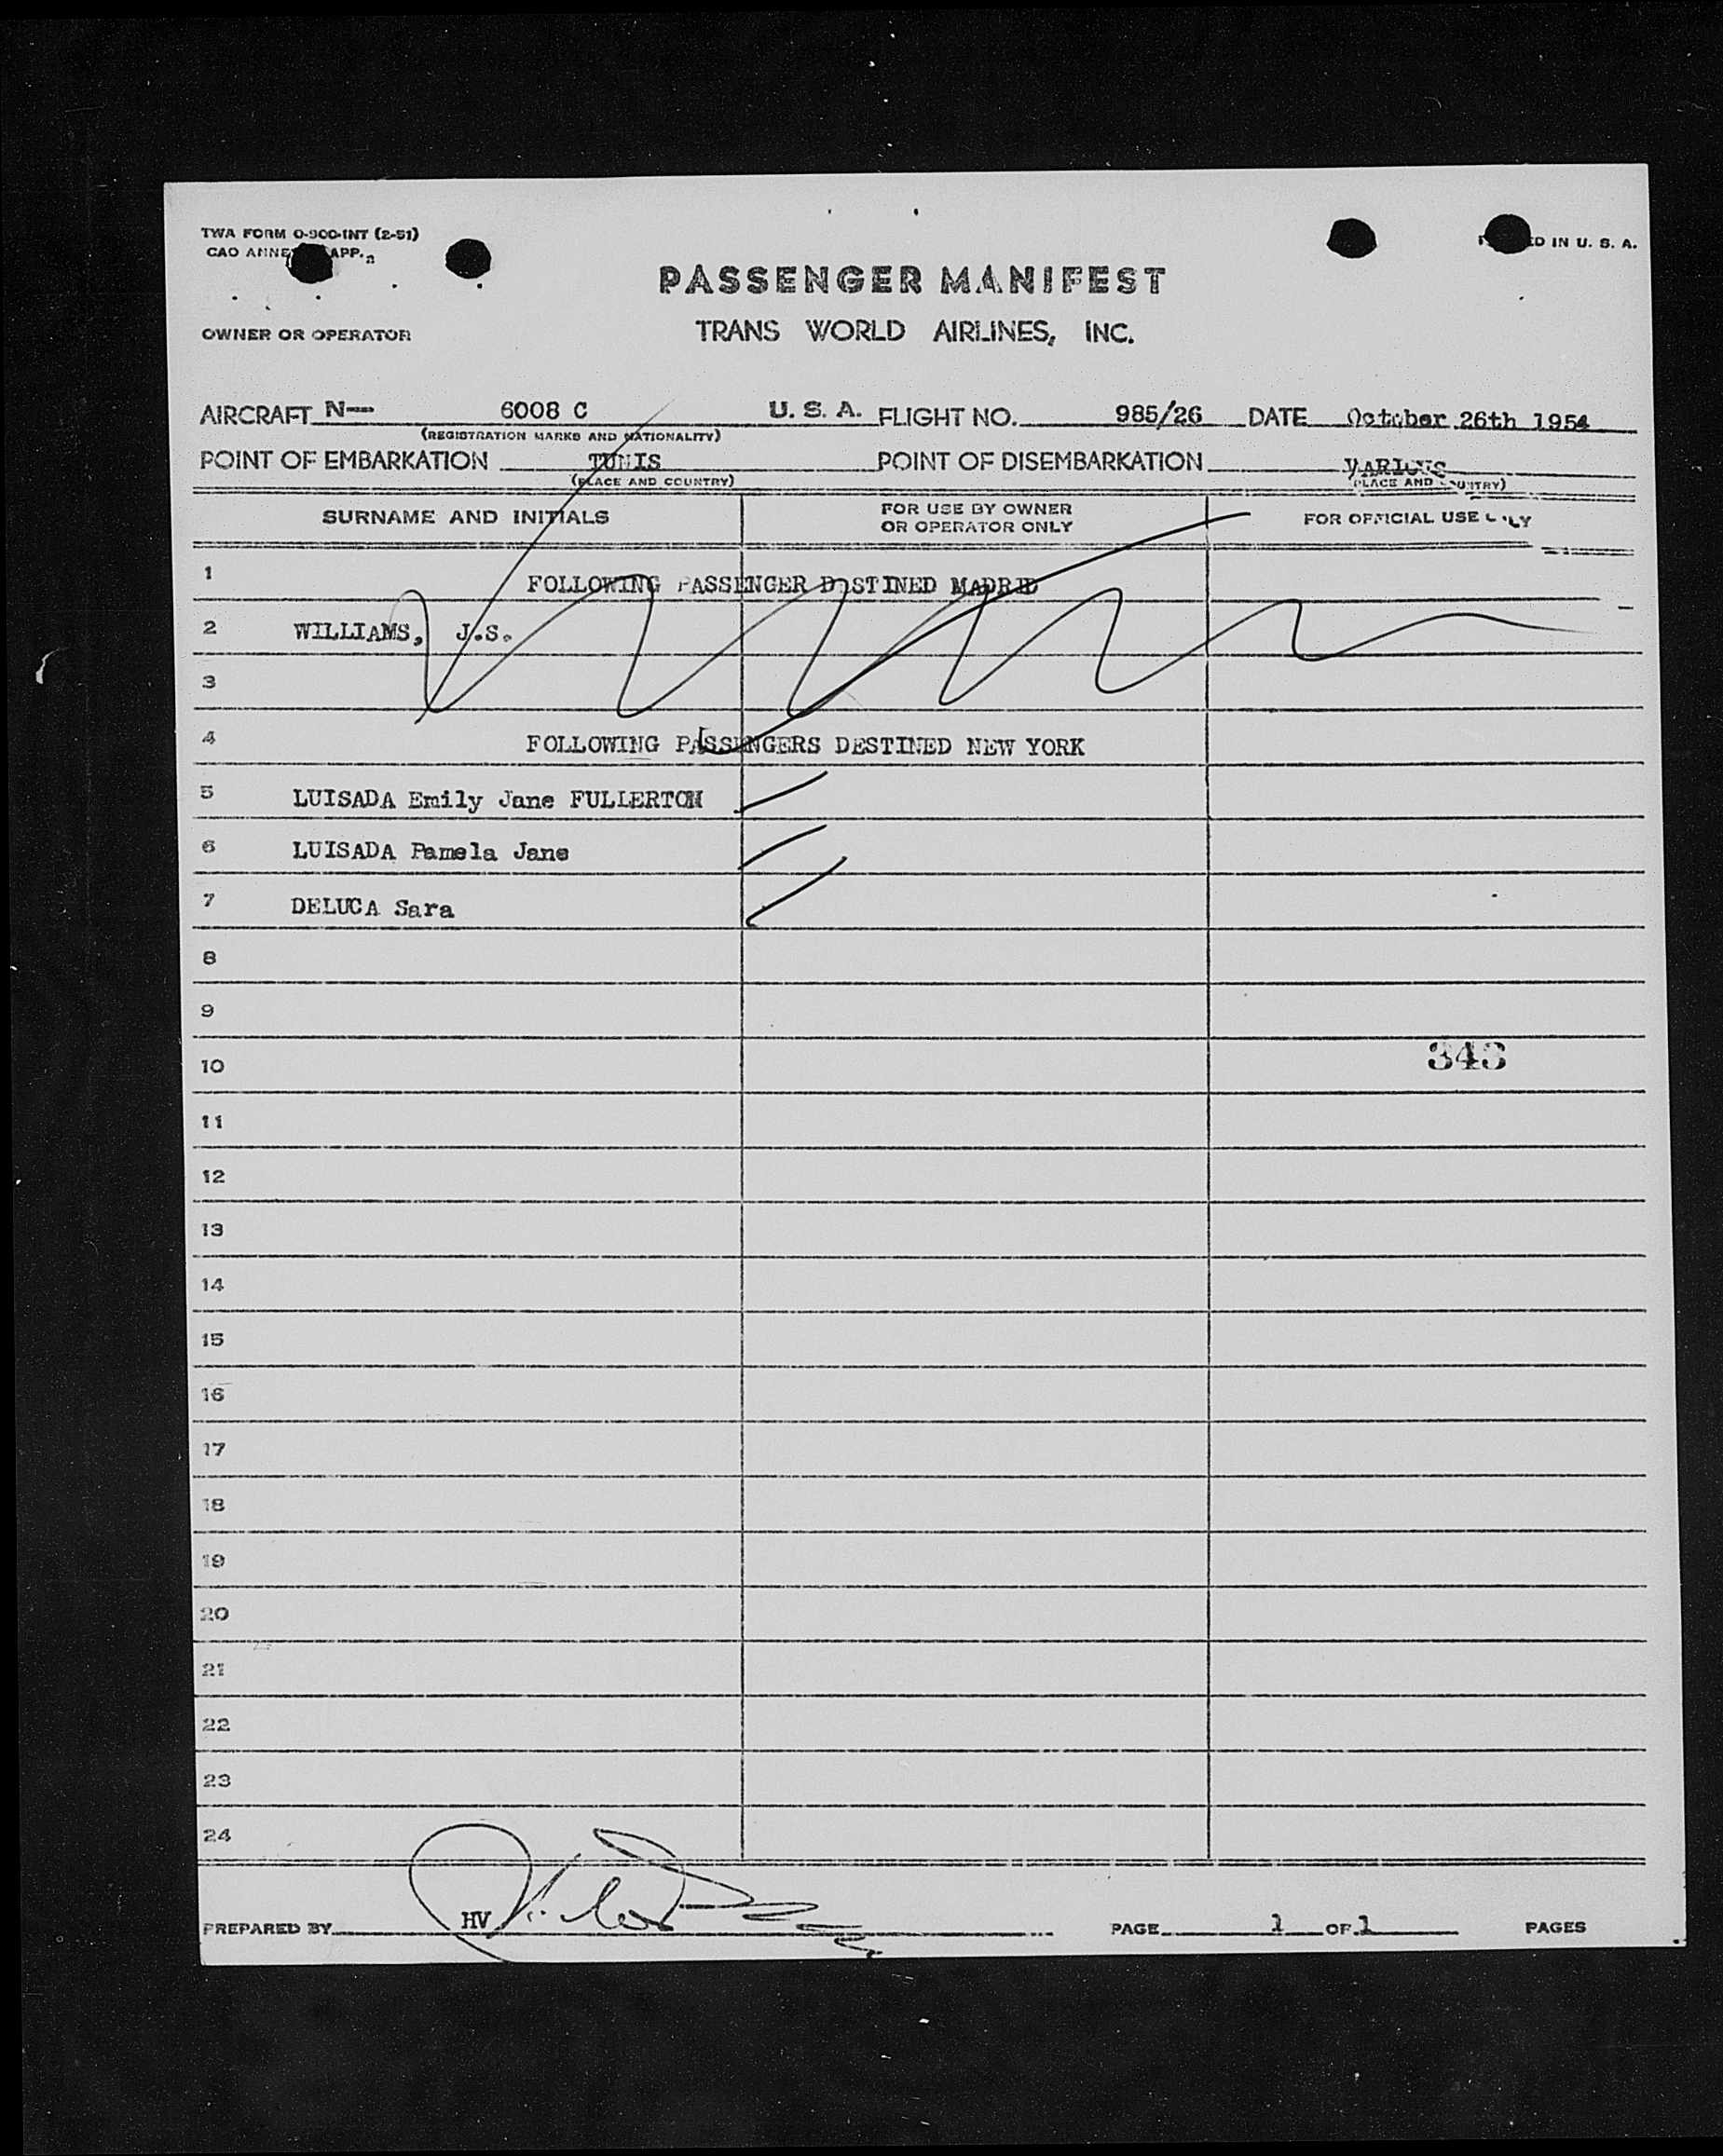 TWA FORM O-900-INT (2-51)
CAO ANNE APP.
D IN U. S. A.
PASSENGER MANIFEST
OWNER OR OPERATOR
TRANS WORLD AIRLINES, INC.
AIRCRAFT N— 6008 C U. S. A. FLIGHT NO. 985/26 DATE October 26th 1954
(REGISTRATION MARKS AND NATIONALITY)
POINT OF EMBARKATION TUNIS POINT OF DISEMBARKATION VARIOUS
(PLACE AND COUNTRY) (PLACE AND COUNTRY)
SURNAME AND INITIALS FOR USE BY OWNER OR OPERATOR ONLY FOR OFFICIAL USE ONLY
1 FOLLOWING PASSENGER DESTINED MADRID
2 WILLIAMS, J.S.
3
4 FOLLOWING PASSENGERS DESTINED NEW YORK
5 LUISADA Emily Jane FULLERTON
6 LUISADA Pamela Jane
7 DELUCA Sara
8
9
10 343
11
12
13
14
15
16
17
18
19
20
21
22
23
24
PREPARED BY HV PAGE 1 OF 1 PAGES